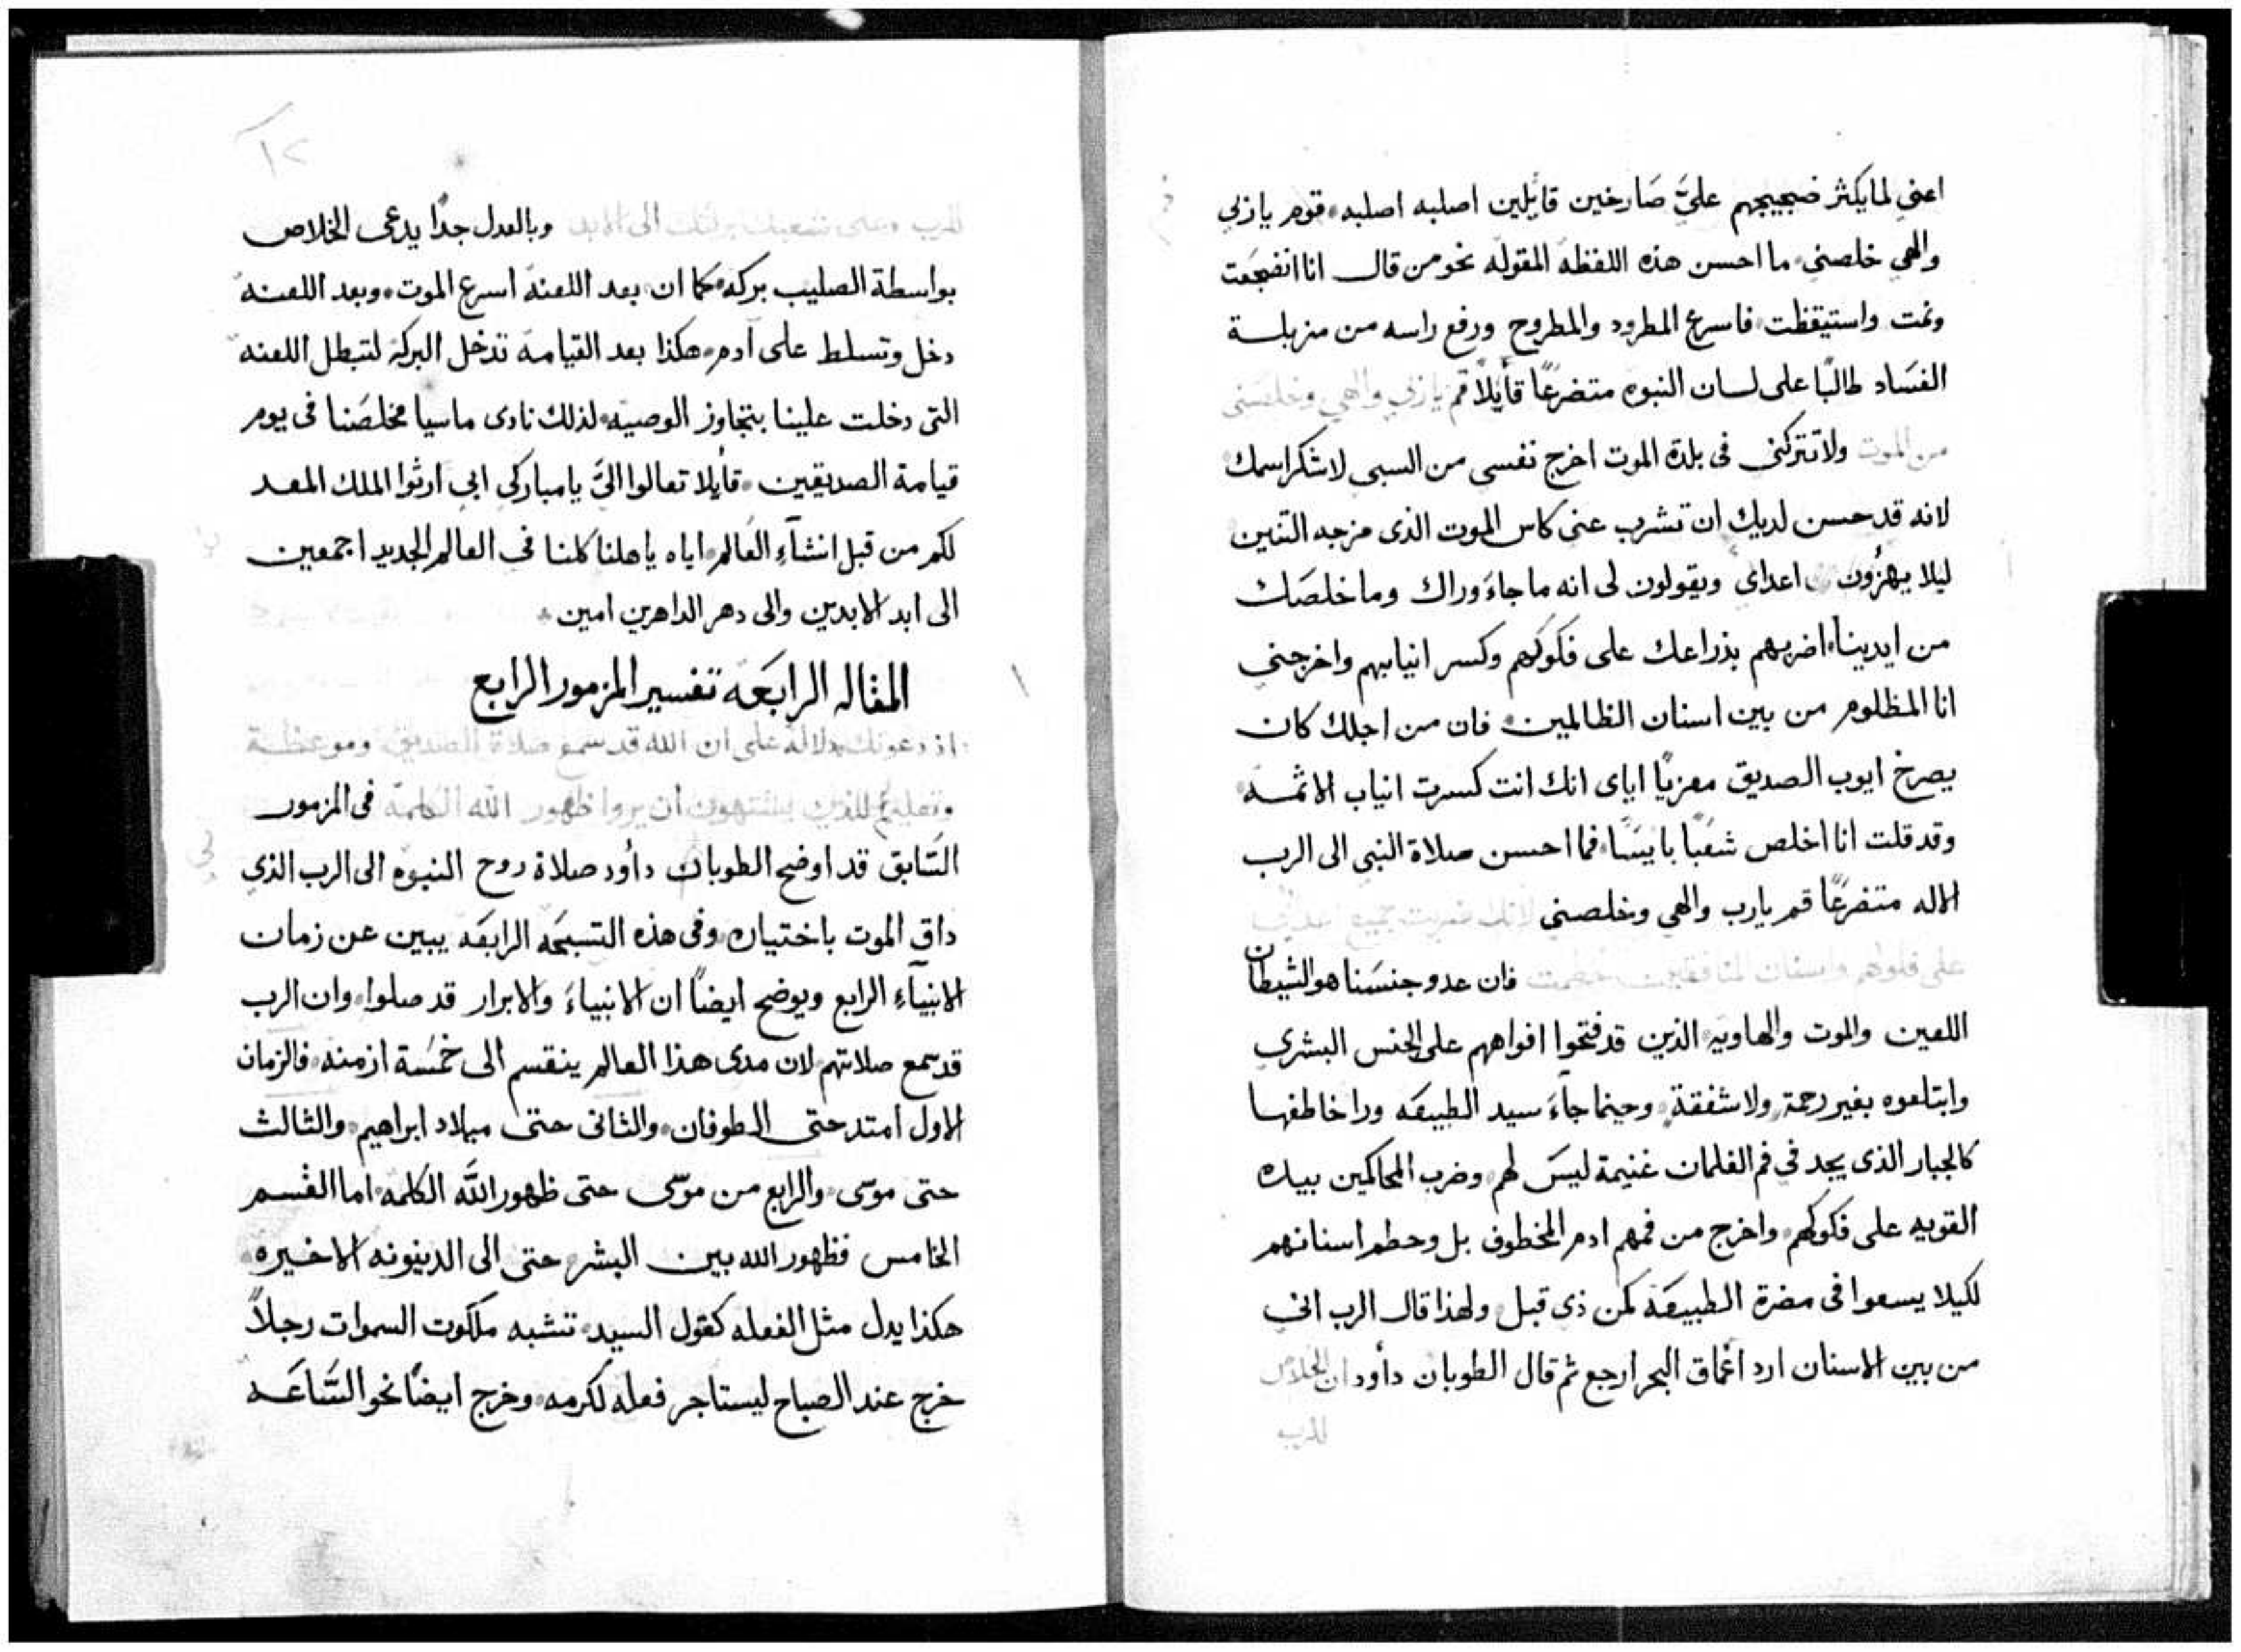 اعنى لما يكثر ضجيجهم عليَّ صَارخين قائلين اصلبه اصلبه، قوم يا ربي
والهي خلصني، ما احسن هذه اللفظة المقوله نحو من قال انا انضجعَت
ونمت واستيقظت فاسرع المطرود والمطروح ورفع راسه من مزبلـة
الفسَاد طالبًا على لسان النبوه متضرعًا قائلاً قم يا ربي والهي وخلصنى
من الموت ولا تتركنى فى بلدة الموت اخرج نفسى من السبى لاشكر اسمك
لانه قد حسن لديك ان تشرب عنى كاس الموت الذى مزجه التنين
ليلا يهزُون اعداى ويقولون لى انه ما جاءَ وراك وما خلصَك
من ايدينا، اضربهم بذراعك على فكوكهم وكسر انيابهم واخرجني
انا المظلوم من بين اسنان الظالمين، فان من اجلك كان
يصرخ ايوب الصديق معزيًا اياى انك انت كسرت انياب الاثمـه
وقد قلت انا اخلص شعَبًا بايسًا، فما احسن صلاة النبى الى الرب
الاله متضرعًا قم يا رب والهي وخلصنى لانك ضربت جميع
على فلولهم واسنان المنافقين حطمت فان عدو جنسَنا هو الشيطان
اللعين والموت والهاويه الذين قد فتحوا افواههم على الجنس البشري
وابتلعوه بغير رحمة ولا شفقة، وحينما جاءَ سيد الطبيعَه ورا خاطفها
كالجبار الذى يجد في فم الغلمان غنيمة ليسَ لهم، وضرب المحاكمين بيده
القويه على فكوكهم، واخرج من فمهم ادم المخطوف بل وحطم اسنانهم
لكيلا يسعوا فى مضرة الطبيعَة كمن ذى قبل، ولهذا قال الرب انى
من بين الاسنان ارد اعماق البحر ارجع ثم قال الطوبان داؤد ان الخلاص
للرب
١٢
للرب وعلى شعبك بركتك الى الابد وبالعدل جدًا يدعى الخلاص
بواسطة الصليب بركه، كما ان بعد اللعنة اسرع الموت، وبعد اللعنـه
دخل وتسلط على آدم، هكذا بعد القيامة تدخل البركة لتبطل اللعنه
التى دخلت علينا بتجاوز الوصيه، لذلك نادى ماسيا مخلصَنا فى يوم
قيامة الصديقين، قائلا تعالوا اليَّ يا مباركي ابي ارثوا الملك المعـد
لكم من قبل انشآءِ العَالم، اياه ياهلنا كلنا فى العالم الجديد اجمعين
الى ابد الابدين والى دهر الداهرين امين
المقاله الرابعَة تفسير المزمور الرابع
اذ دعوتك دلالة على ان الله قد سمع صلاة الصديق، وموعظـة
وتعليم للذين يشتهون ان يروا ظهور الله الكلمة فى المزمور
السَابق قد اوضح الطوبان داؤد صلاة روح النبوه الى الرب الذي
داق الموت باختياره، وفى هذه التسبحَه الرابعَه يبين عن زمان
الانبيآءِ الرابع ويوضح ايضًا ان الانبياءَ والابرار قد صلوا، وان الرب
قد سمع صلاتهم لان مدى هذا العالم ينقسم الى خمسَة ازمنه، فالزمان
الاول امتد حتى الطوفان، والثانى حتى ميلاد ابراهيم، والثالث
حتى موسى، والرابع من موسى حتى ظهور الله الكلمه، اما القسم
الخامس فظهور الله بين البشر، حتى الى الدينونه الاخيره
هكذا يدل مثل الفعله كقول السيد، تشبه ملكوت السموات رجلاً
خرج عند الصباح ليستاجر فعله لكرمه، وخرج ايضًا نحو السَّاعَـه